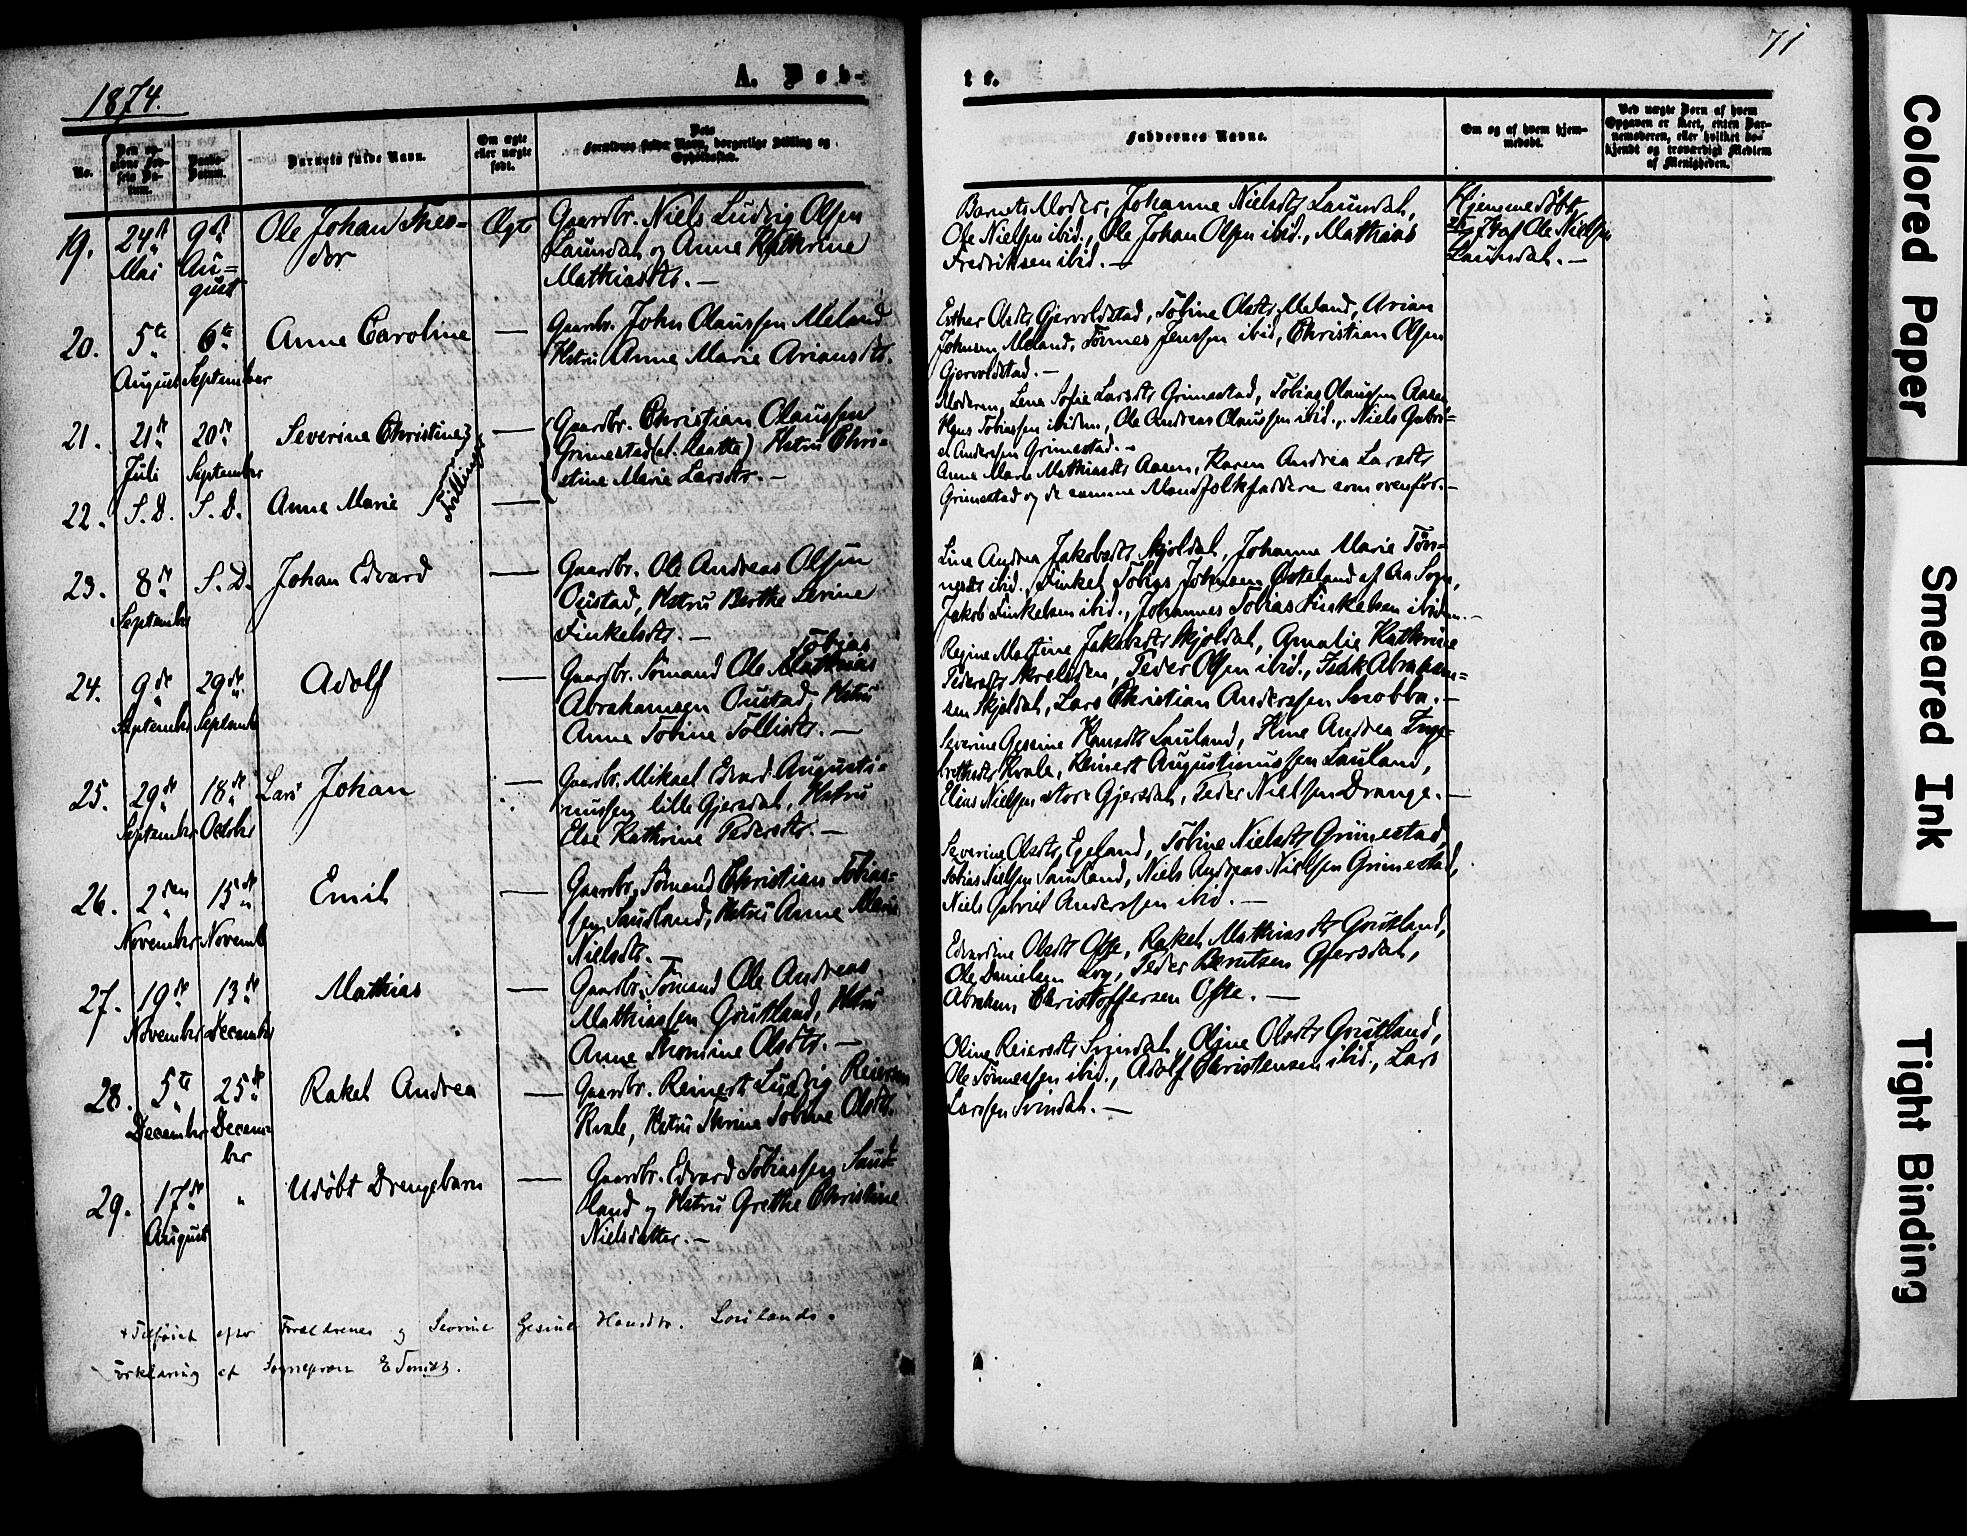 1874.
A. Døb-
No.
Barnets fulde Navn.
Om ægte
eller uægte
født.
19.
24de
Mai
9de
Au-
gust
Ole Johan Theo-
dor
Ægte
Gaardbr. Niels Ludvig Olsen
Launsdal og Anne Kathrine
Mathiasdtr. —
20.
5te
August
6te
September
Anne Caroline
—
Gaardbr. John Olaussen Meland
Hstru Anne Marie Ariansdtr.
21.
21de
Juli
20de
September
Severine Christine
—
Gaardbr. Christian Olaussen
Grimestad Hstru Chri-
stine Marie Larsdtr. —
Tvillinger
22.
S. D.
S. D.
Anne Marie
—
23.
8de
September
S. D.
Johan Edvard
—
Gaardbr. Ole Andreas Olsen
Oustad, Hstru Berthe Serine
Finkelsdtr. —
24.
9de
September
29de
September
Adolf
—
Tobias
Gaardbr. Sømand Ole Mathias
Abrahamsen Oustad, Hstru
Anne Tobine Tollisdtr. —
25.
29de
September
18de
Octobr
Lars Johan
—
Gaardbr. Mikael Edvard Augusti-
nussen lille Gjersdal, Hstru
Else Kathrine Pedersdtr. —
26.
2den
November
15de
Novemb
Emil
—
Gaardbr. Sømand Christian Tobias-
sen Saudland, Hstru Anne Marie
Nielsdtr. —
27.
19de
November
13de
December
Mathias
—
Gaardbr. Sømand Ole Andreas
Mathiassen Grutland, Hstru
Anne Thomine Olsdtr. —
28.
5te
December
25de
Decem-
ber
Rakel Andrea
—
Gaardbr. Reinert Ludvig Reiersen
Kvale, Hstru Tobine Olsdtr.
29.
17de
August
"
Udøbt Drengebarn
—
Gaardbr. Edvard Tobiassen Saud-
land og Hstru Grethe Christine
Nielsdatter. —
+ Tilføiet efter Forældrenes og Severine Gesine Hansdtr. Laulands
Erklæring af Sogneprest
71
te.
Faddernes Navne.
Om og af hvem hjem-
medøbt.
Ved uægte Børn af hvem
Opgaven er skeet, enten Bar-
nemoderen, eller hvilket be-
kjendt og troværdigt Medlem
af Menigheden.
Barnets Moder, Johanne Nielsdtr Launsdal,
Ole Nielsen ibid., Ole Johan Olsen ibid., Mathias
Fredriksen ibid. —
Hjemmedøbt
af Ole Nielsen
Launsdal. —
Esther Olsdtr Gjervoldstad, Tobine Olsdtr Meland, Arian
Johnsen Meland, Tønnes Jenssen ibid, Christian Olsen
Gjervoldstad. —
Moderen, Lene Sofie Larsdtr Grimestad, Tobias Olaussen Aasen
Hans Tobiassen ibidem, Ole Andreas Olaussen ibid., Niels Gabri-
el Anderssen Grimestad. —
Anne Marie Mathiasdtr Aasen, Karen Andrea Larsdtr
Grimestad og de samme Mandfolkfaddere som ovenfor. —
Line Andrea Jakobsdtr Skjoldal, Johanne Marie Tøn-
nesdtr ibid., Finkel Tobias Johnsen Østeland af Aa Sogn,
Jakob Finkelsen ibid., Johannes Tobias Finkelsen ibidem. —
Regine Mattine Jakobsdtr Skjoldal, Amalie Kathrine
Pedersdtr Skreleden, Peder Olsen ibid., Isak Abraham-
sen Skjoldal, Lars Christian Anderssen Snobba. —
Severine Gesine Hansdtr Lauland, Andrea Inge-
brethsdtr Kvale, Reinert Augustinussen Lauland,
Elias Nielsen store Gjersdal, Peder Nielsen Drange. —
Severine Olsdtr Egeland, Tobine Nielsdtr Grimestad,
Tobias Nielsen Saudland, Niels Andreas Nielsen Grimestad,
Niels Gabriel Anderssen ibid. —
Edvardine Olsdtr Ofte, Rakel Mathiasdtr Grutland,
Ole Danielsen Log, Peder Berntsen Gjersdal,
Abraham Christoffersen Ofte. —
Oline Reiersdtr Svindal, Oline Olsdtr Grutland,
Ole Tønnessen ibid., Adolf Christensen ibid., Lars
Larssen Svindal. —
Colored Paper
Smeared Ink
Tight Binding